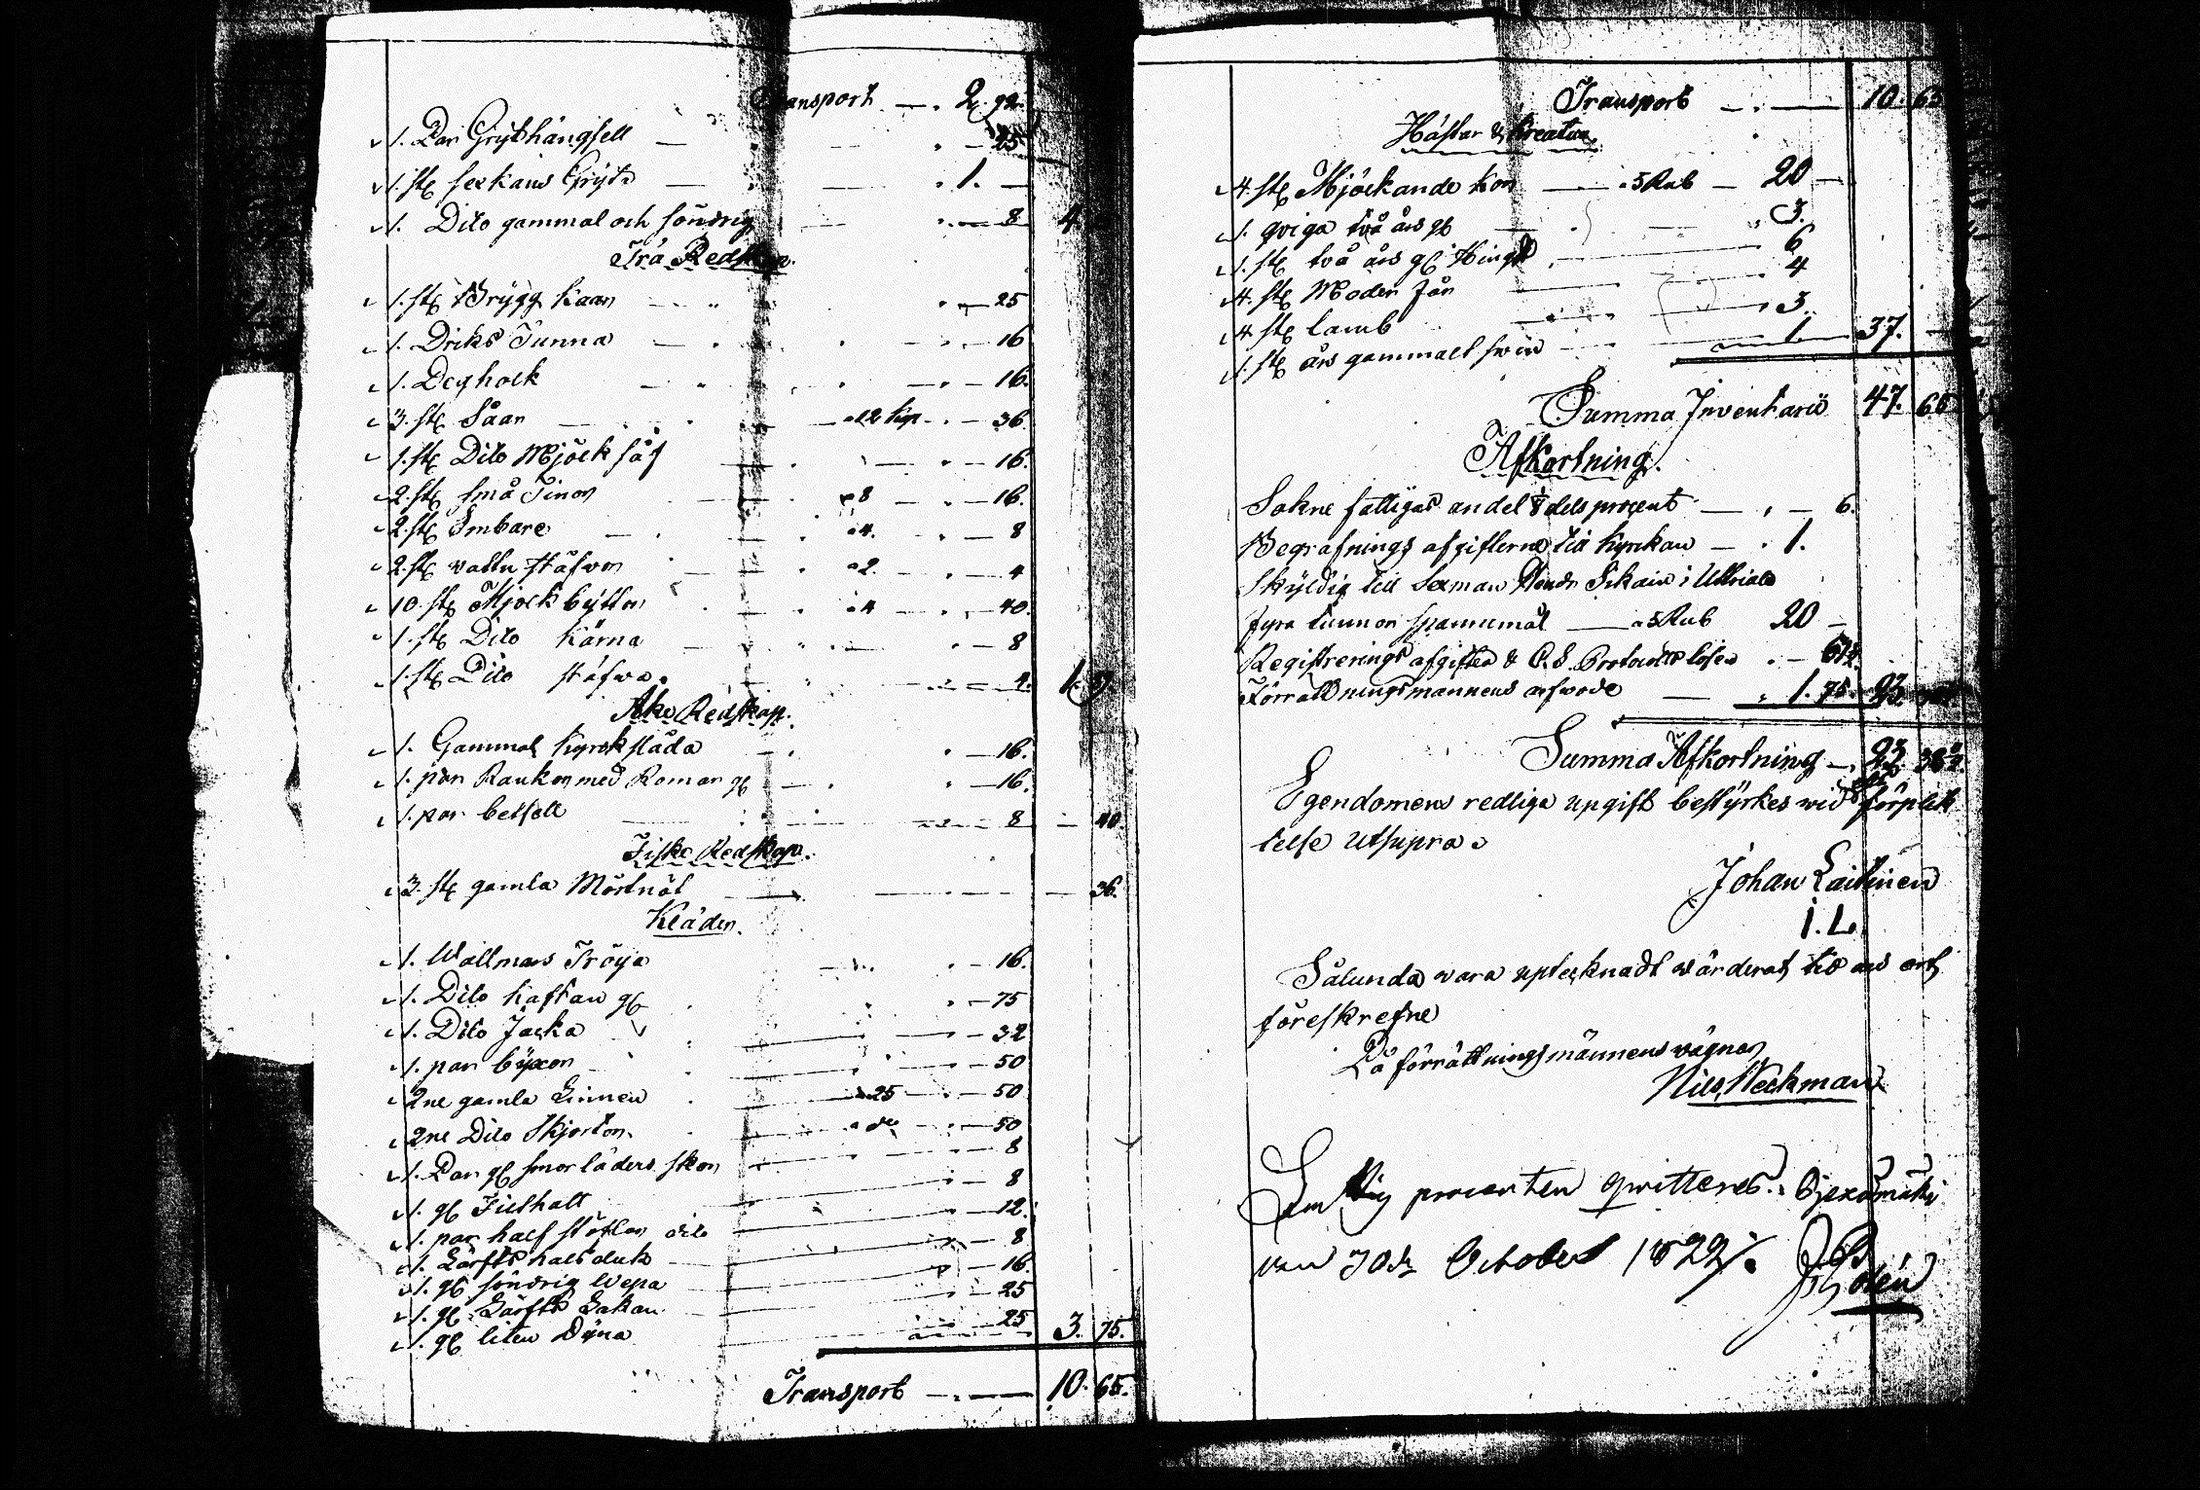 Transport — . 2. 92.
1. Par Grythängsell — . — 25
1. stk sexkans Gryta — . 1. —
1. Dito gammal och söndrig — . — 8 4.
Trä Redskap.
1. stk Brygg Kaar . — 25
1. Dricks Tunna — . — 16
1. Deghock — . — 16.
3. stk Såar — a 12 Kop . — 36.
1. stk Dito Mjölk såf — . — 16.
2. stk små Tinor a 8 — . — 16.
2. stk Embare a 4. . — 8
2. stk vattu stäfvor a 2. — . — 4
10. stk Mjölk byttor a 4 — . — 40.
1. stk Dito Kärna — . — 8
1. stk Dito stäfwa . — 4. 1.
Åke Redskap.
1. Gammal Kyrksläda . — 16.
1. par Rankor med Remar gl — . — 16.
1. par betsell . — 8 — 40.
Fiske Redskap.
3. stk gamla Mörtnät — 36.
Kläder.
1. Wallmars Tröya . — 16.
1. Dito Kaftan gl . — 75
1. Dito Jacka . — 32
1. par byxor . — 50
2ne gamla Linnen a 25 . — 50
2ne Dito Skjortor a do . — 50
1. Par gl smorläders skor — 8
1. gl Filthatt . — 8
1. par half stöflar dito — 12.
1. Lärfts halsduk — 8
1. gl söndrig Wepa — 16.
1. gl Lärfts Lakan — 25
1. gl liten Dyna — 25 3. 75.
Transport — . — 10. 65.
Transport — . — 10. 65
Hästar & Kreatur.
4. stk Mjölkande Kor — a 5 Rub — 20 —
1. qviga två års gl — . 3.
1. stk två års gl Hingst — 6
4. stk Moder får — . 4
4. stk lamb — . 3.
1. stk års gammalt swin — 1. 37. —
Summa Inventarii 47. 65
Afkortning.
Sokne fattigas andel 1/8 dels procent — . — 6.
Begrafnings afgifterne till Kyrkan — . 1.
Skyldig till Sexman Hendr i
fyra tunnor spannmål — a 5 Rub 20 —
Registrerings afgiften & Protocolls lösen . —
Förrättningsmannens arfvode — . 1. 75. 23
Summa Afkortning — . 23.
Egendomens redliga upgift bestyrkes wid förplik
telse utsupra.
Johan Laitinen
I. L.
Sålunda vara uptecknadt wärderat
föreskrefne
På förrättningsmännens vägnar
Nils Weckman
procenten qvitteres.
den 30de October 1822/.